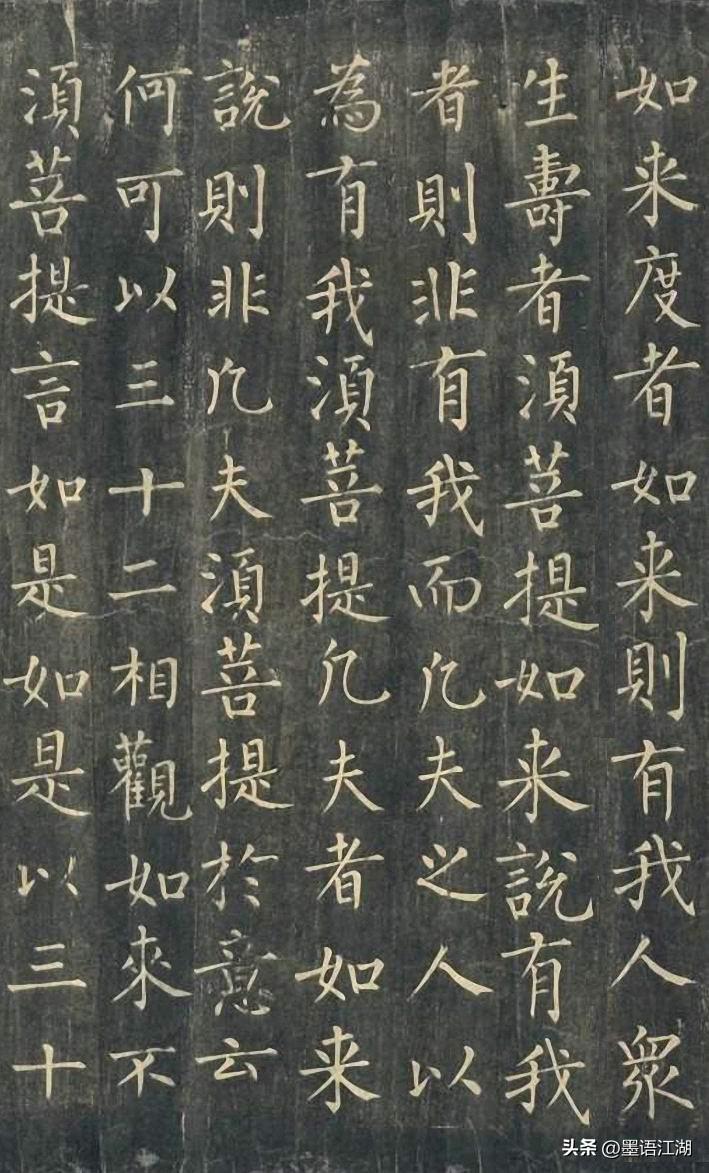 如来度者如来則有我人衆
生壽者須菩提如来説有我
者則非有我而凡夫之人以
為有我須菩提凡夫者如来
説則非凡夫須菩提於意云
何可以三十二相觀如來不
須菩提言如是如是以三十
头条 @墨语江湖